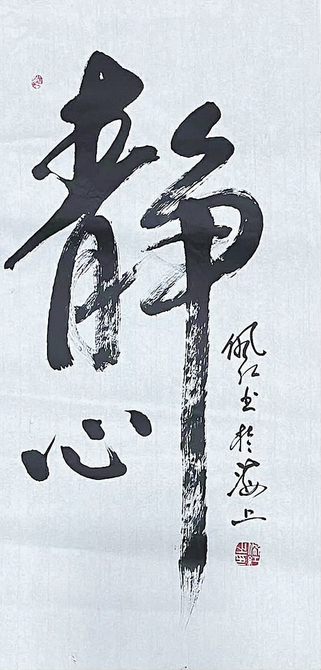 静心
佩红书于海上